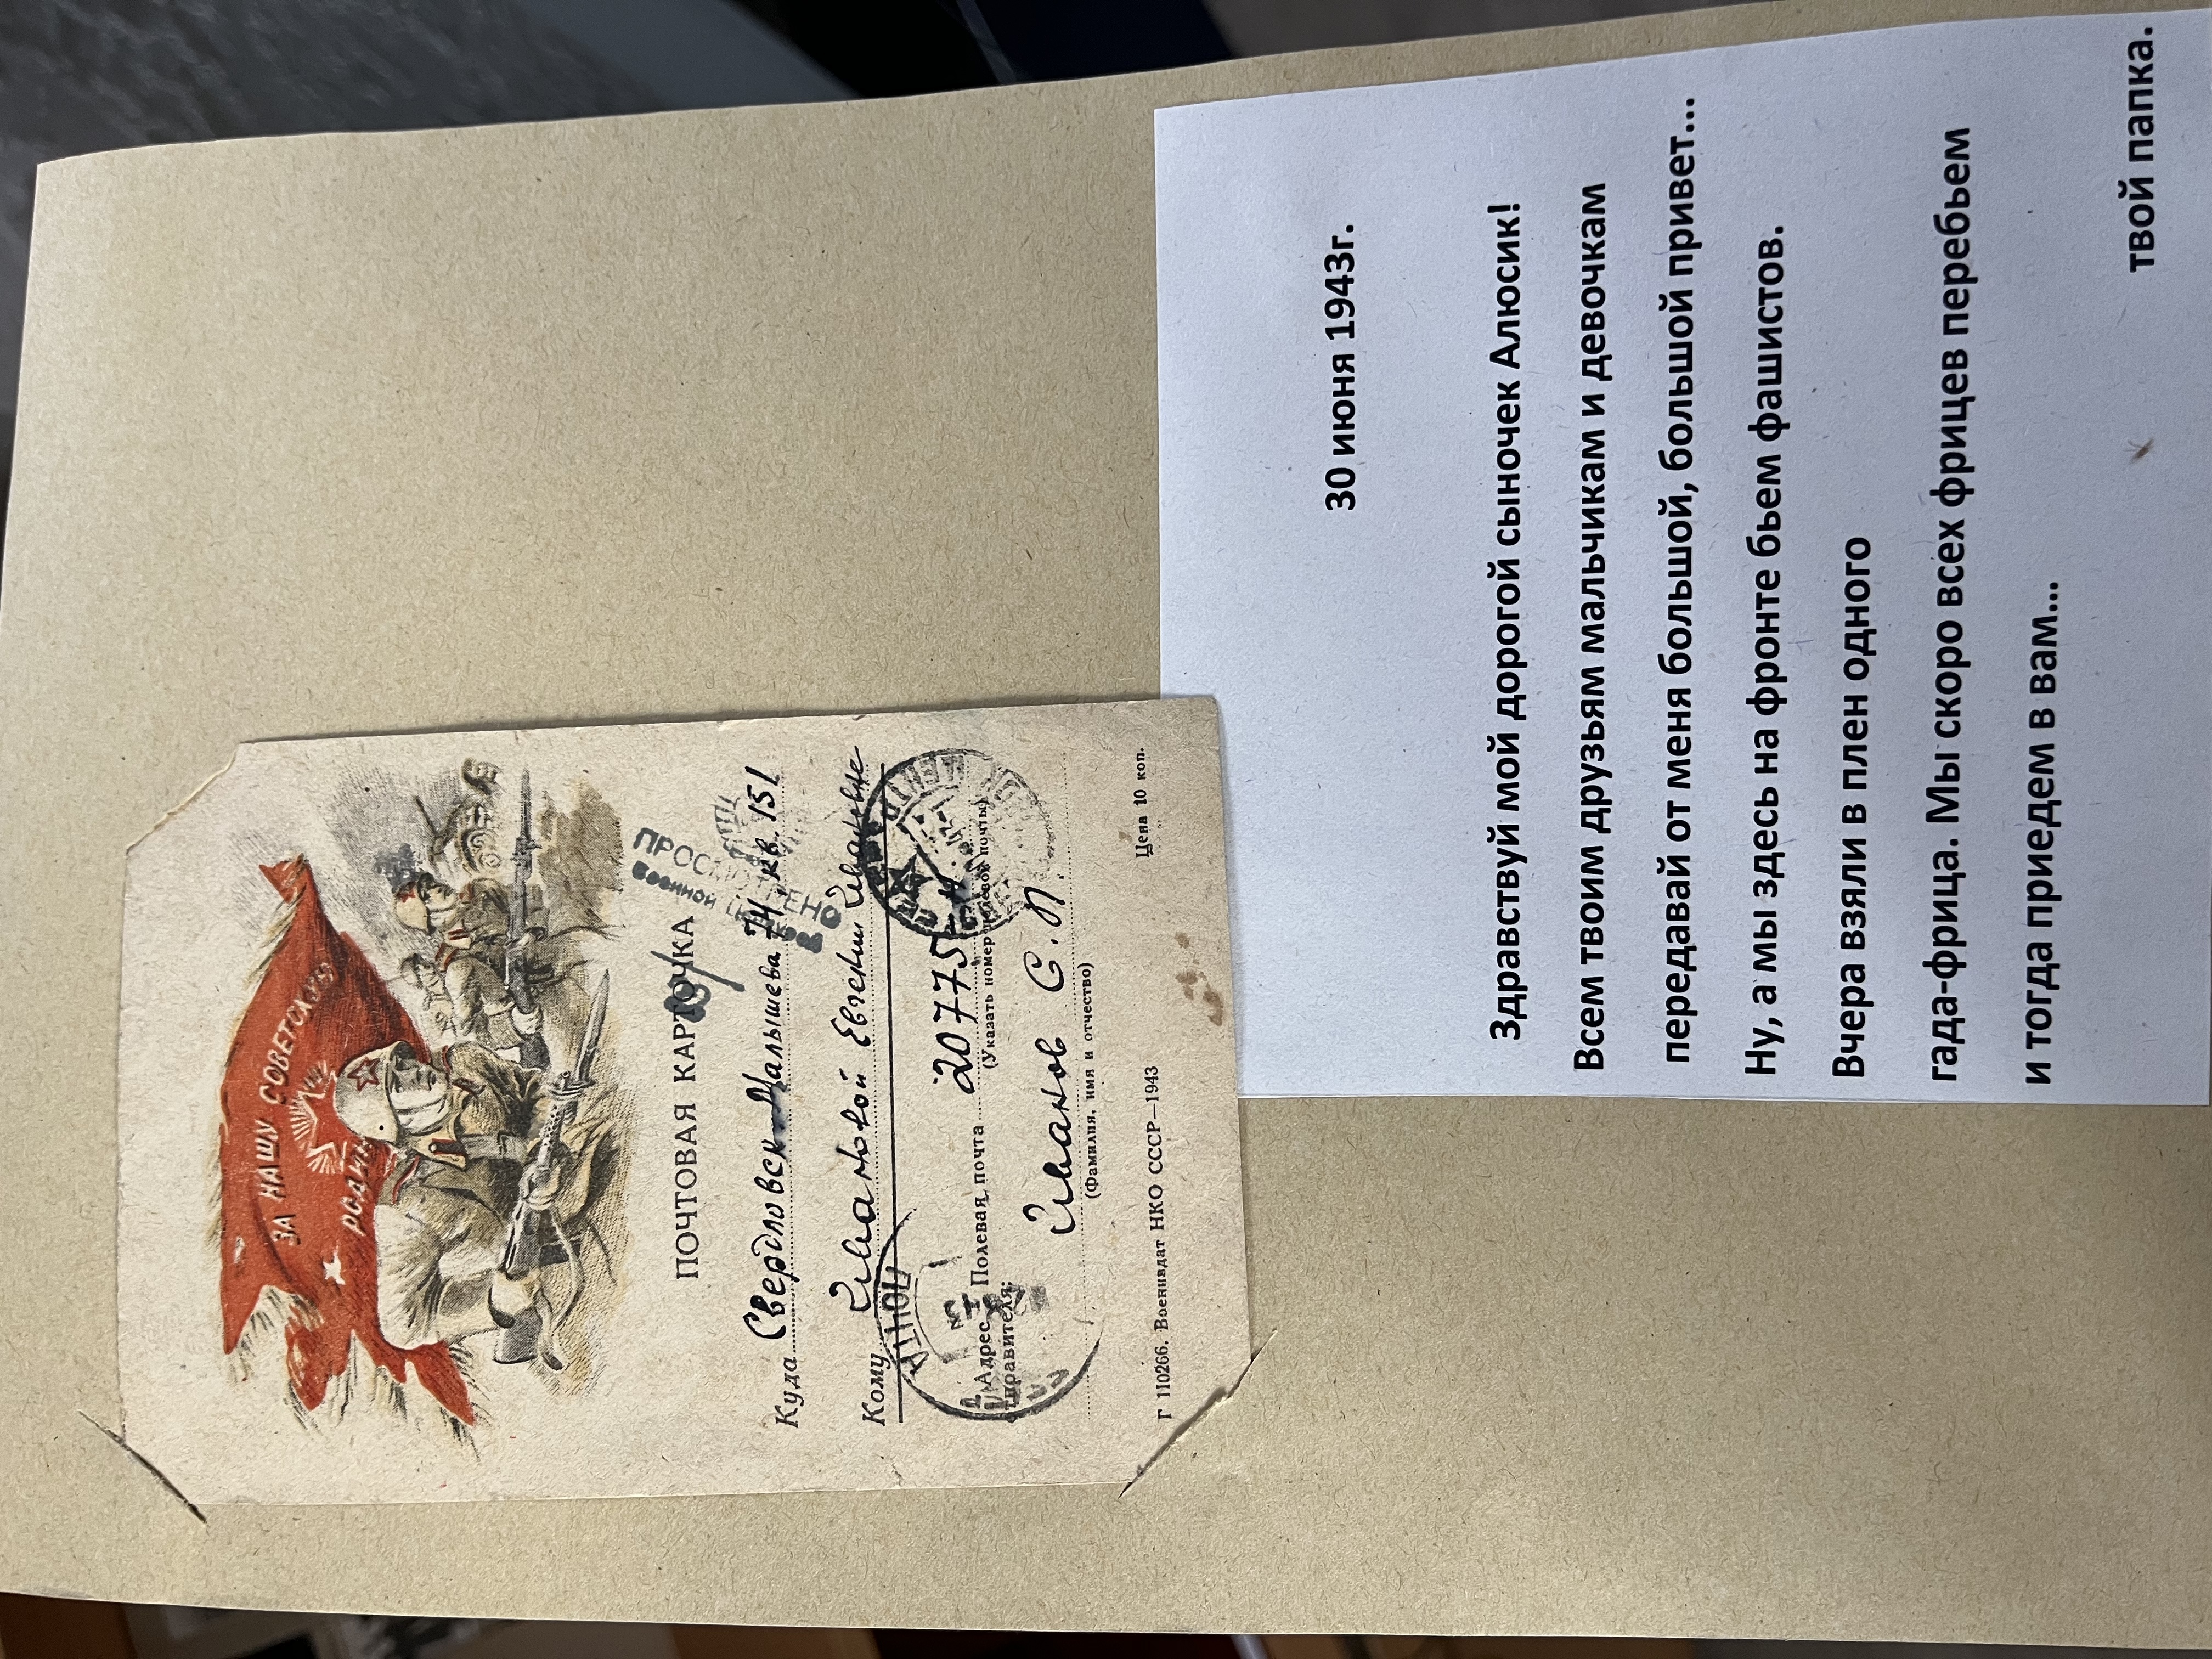 ЗА НАШУ СОВЕТСКУЮ
РОДИНУ
ПОЧТОВАЯ КАРТОЧКА
ПРОСМОТРЕНО
Военной
Куда Свердловск Малышева 74, кв. 151
Кому Ивановой Евгении Ивановне
Адрес Полевая почта 20775
отправителя: (Указать номер полевой почты)
Иванов С. П.
(Фамилия, имя и отчество)
Г 110266. Воениздат НКО СССР—1943
Цена 10 коп.
30 июня 1943г.
Здравствуй мой дорогой сыночек Алюсик!
Всем твоим друзьям мальчикам и девочкам
передавай от меня большой, большой привет...
Ну, а мы здесь на фронте бьем фашистов.
Вчера взяли в плен одного
гада-фрица. Мы скоро всех фрицев перебьем
и тогда приедем в вам...
твой папка.